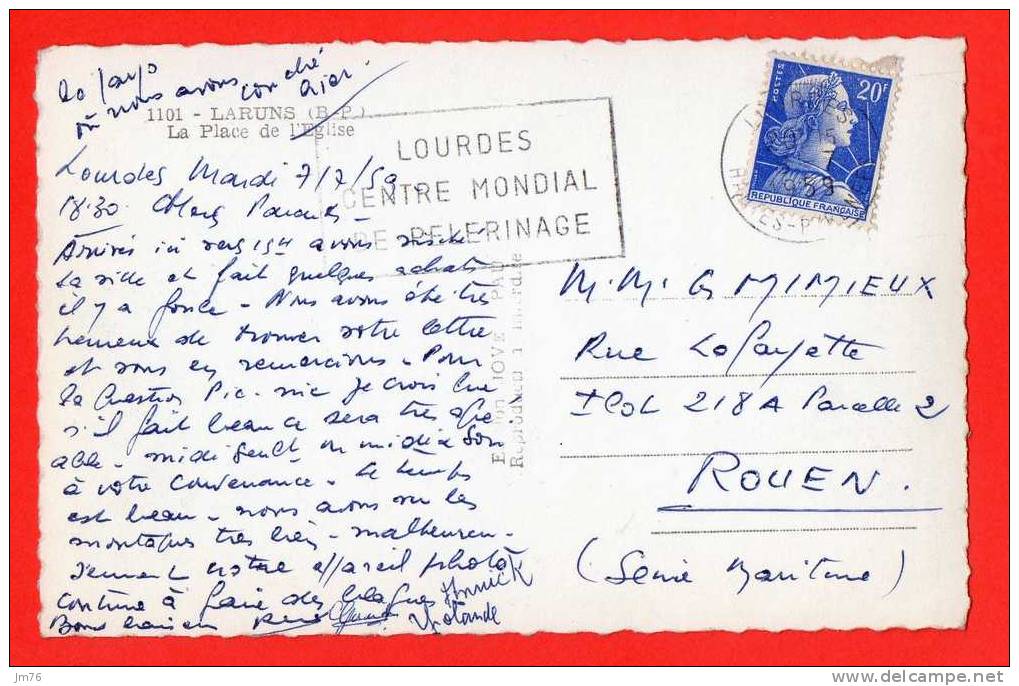 où nous avons couché
hier
1101 - LARUNS (B.-P.)
La Place de l'Eglise
Lourdes Mardi 7/7/59
18.30 Chers Parents -
Arrivés ici vers 15H avons visité
la ville et fait quelques achats
il y a foule - Nous avons été très
heureux de trouver votre lettre
et vous en remercions - Pour
la question Pic-nic je crois que
s'il fait beau ce sera très agré
able - midi ou midi à
à votre convenance - Le temps
est beau - nous avons vu les
montagnes très bien - malheureu-
sement notre appareil photo
continue à faire des blagues
Bons baisers
Annick
Yolande
LOURDES
CENTRE MONDIAL
DE PELERINAGE
20F
POSTES
REPUBLIQUE FRANÇAISE
M. Me G MIMIEUX
Rue Lafayette
Icol 218 A Parcelle 2
ROUEN.
(Seine Maritime)
JOVE PAU
Reproduction Interdite
jm76
delcampe.net